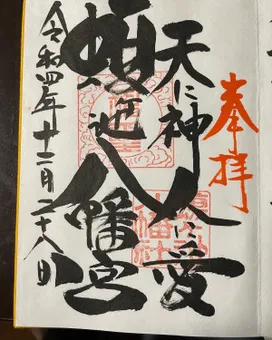 奉拝
天に神 人に愛
蝮ヶ池八幡宮
令和四年十二月二十八日